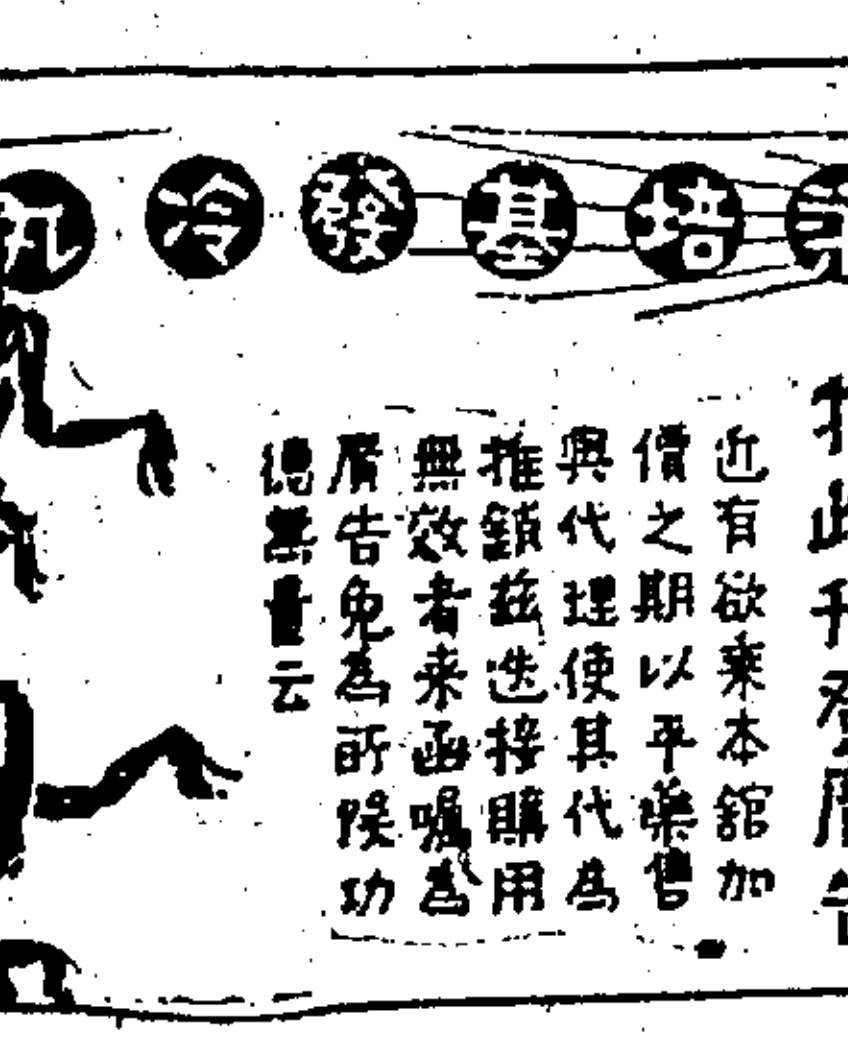 培基發冷丸
此登廣告
近有欲乘本舘加
價之期以平藥售
與代理使其代為
推銷茲迭接購用
無效者来函囑為
廣告免為所悞功
德無量云